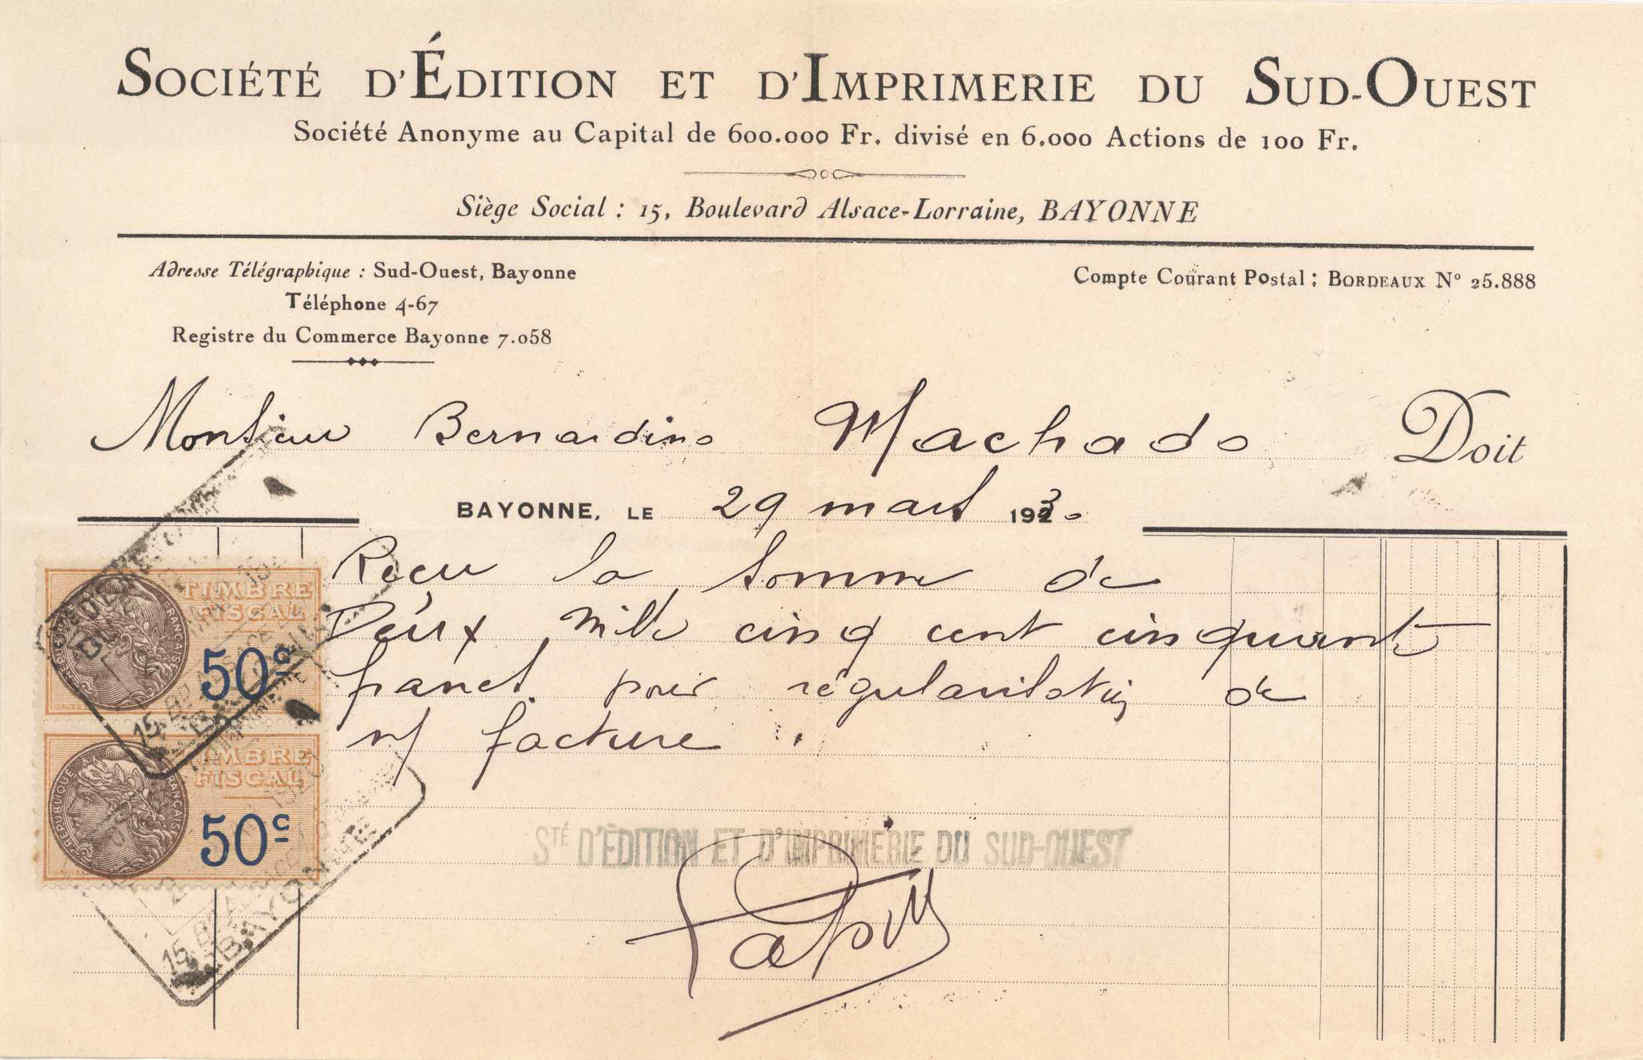 SOCIÉTÉ D'ÉDITION ET D'IMPRIMERIE DU SUD-OUEST
Société Anonyme au Capital de 600.000 Fr. divisé en 6.000 Actions de 100 Fr.
Siège Social : 15, Boulevard Alsace-Lorraine, BAYONNE
Adresse Télégraphique : Sud-Ouest, Bayonne
Compte Courant Postal : BORDEAUX N° 25.888
Téléphone 4-67
Registre du Commerce Bayonne 7.058
Monsieur Bernardino Machado Doit
BAYONNE, LE 29 mars 1930
Reçu la somme de
Deux mille cinq cent cinquante
francs pour régularisation de
n/ facture.
TIMBRE
FISCAL
50c
TIMBRE
FISCAL
50c
RÉPUBLIQUE FRANÇAISE
BAYONNE
STÉ D'ÉDITION ET D'IMPRIMERIE DU SUD-OUEST